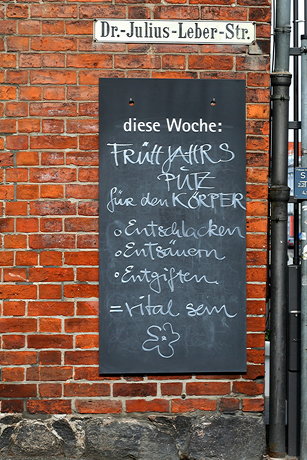 Dr.-Julius-Leber-Str.
diese Woche:
FRÜHJAHRS
PUTZ
für den KÖRPER
o Entschlacken
o Entsäuern
o Entgiften.
= vital sein